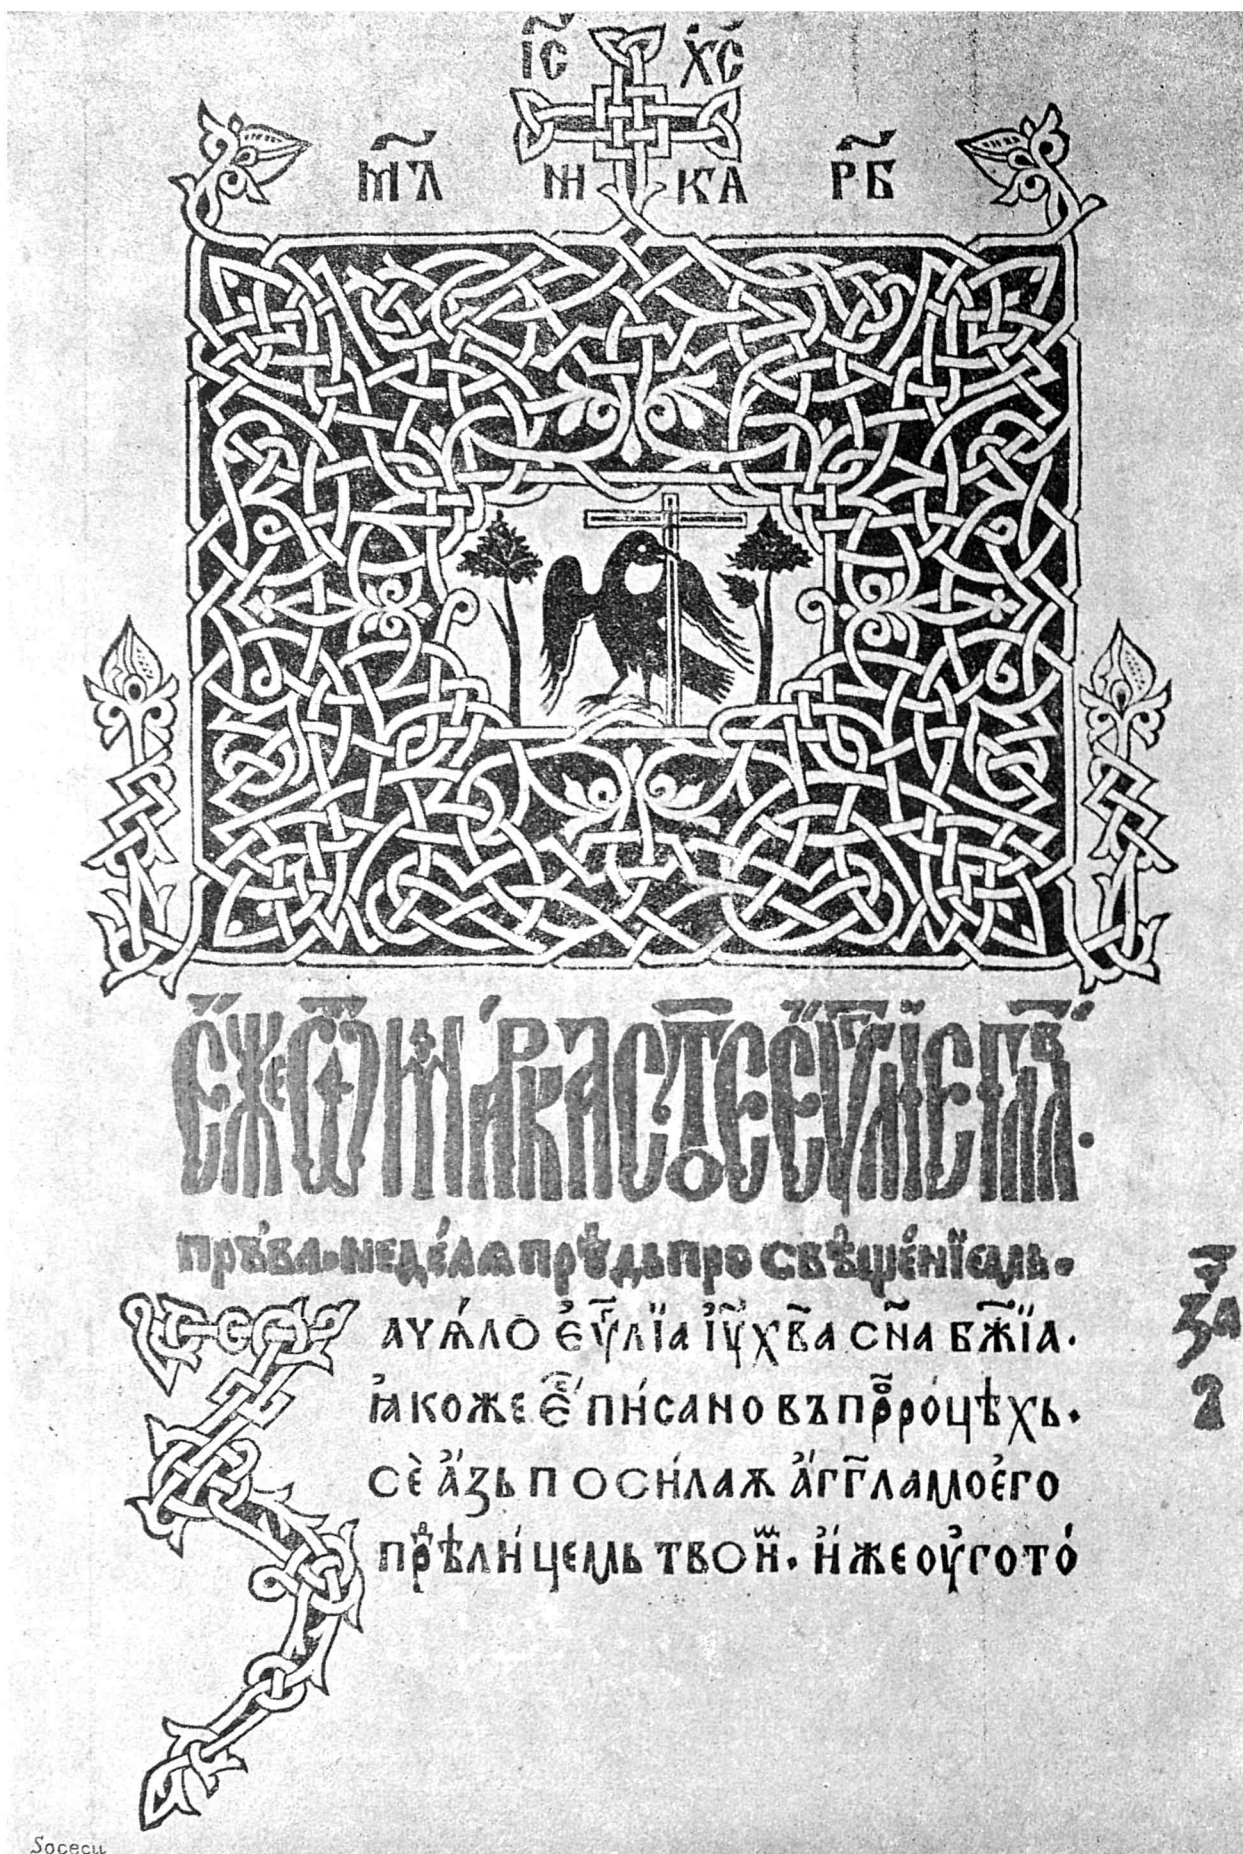 І҃С Х҃С
МЛ҃ НИ КА РБ҃
Е҆́же ѿ Ма́рка ст҃ое є҆ѵ҃глїе гл҃в
пръ́ва. недѣ́лѧ прѣ́дь просвѣще́нїемь.
аꙋѧ́ло є҆ѵ҃лїа і҆ѵ҃ х҃ва сн҃а бж҃їа.
ꙗ҆коже е҆́с҃ пи́сано въ прⷪ҇ро́цѣхь.
сѐ а҆́зь посы́лаѫ а҆́гг҃ла моего
прѣⷣ ли́цемь твои҆ⷨ. и҆́же оу҆гото́
за҃
Socecu